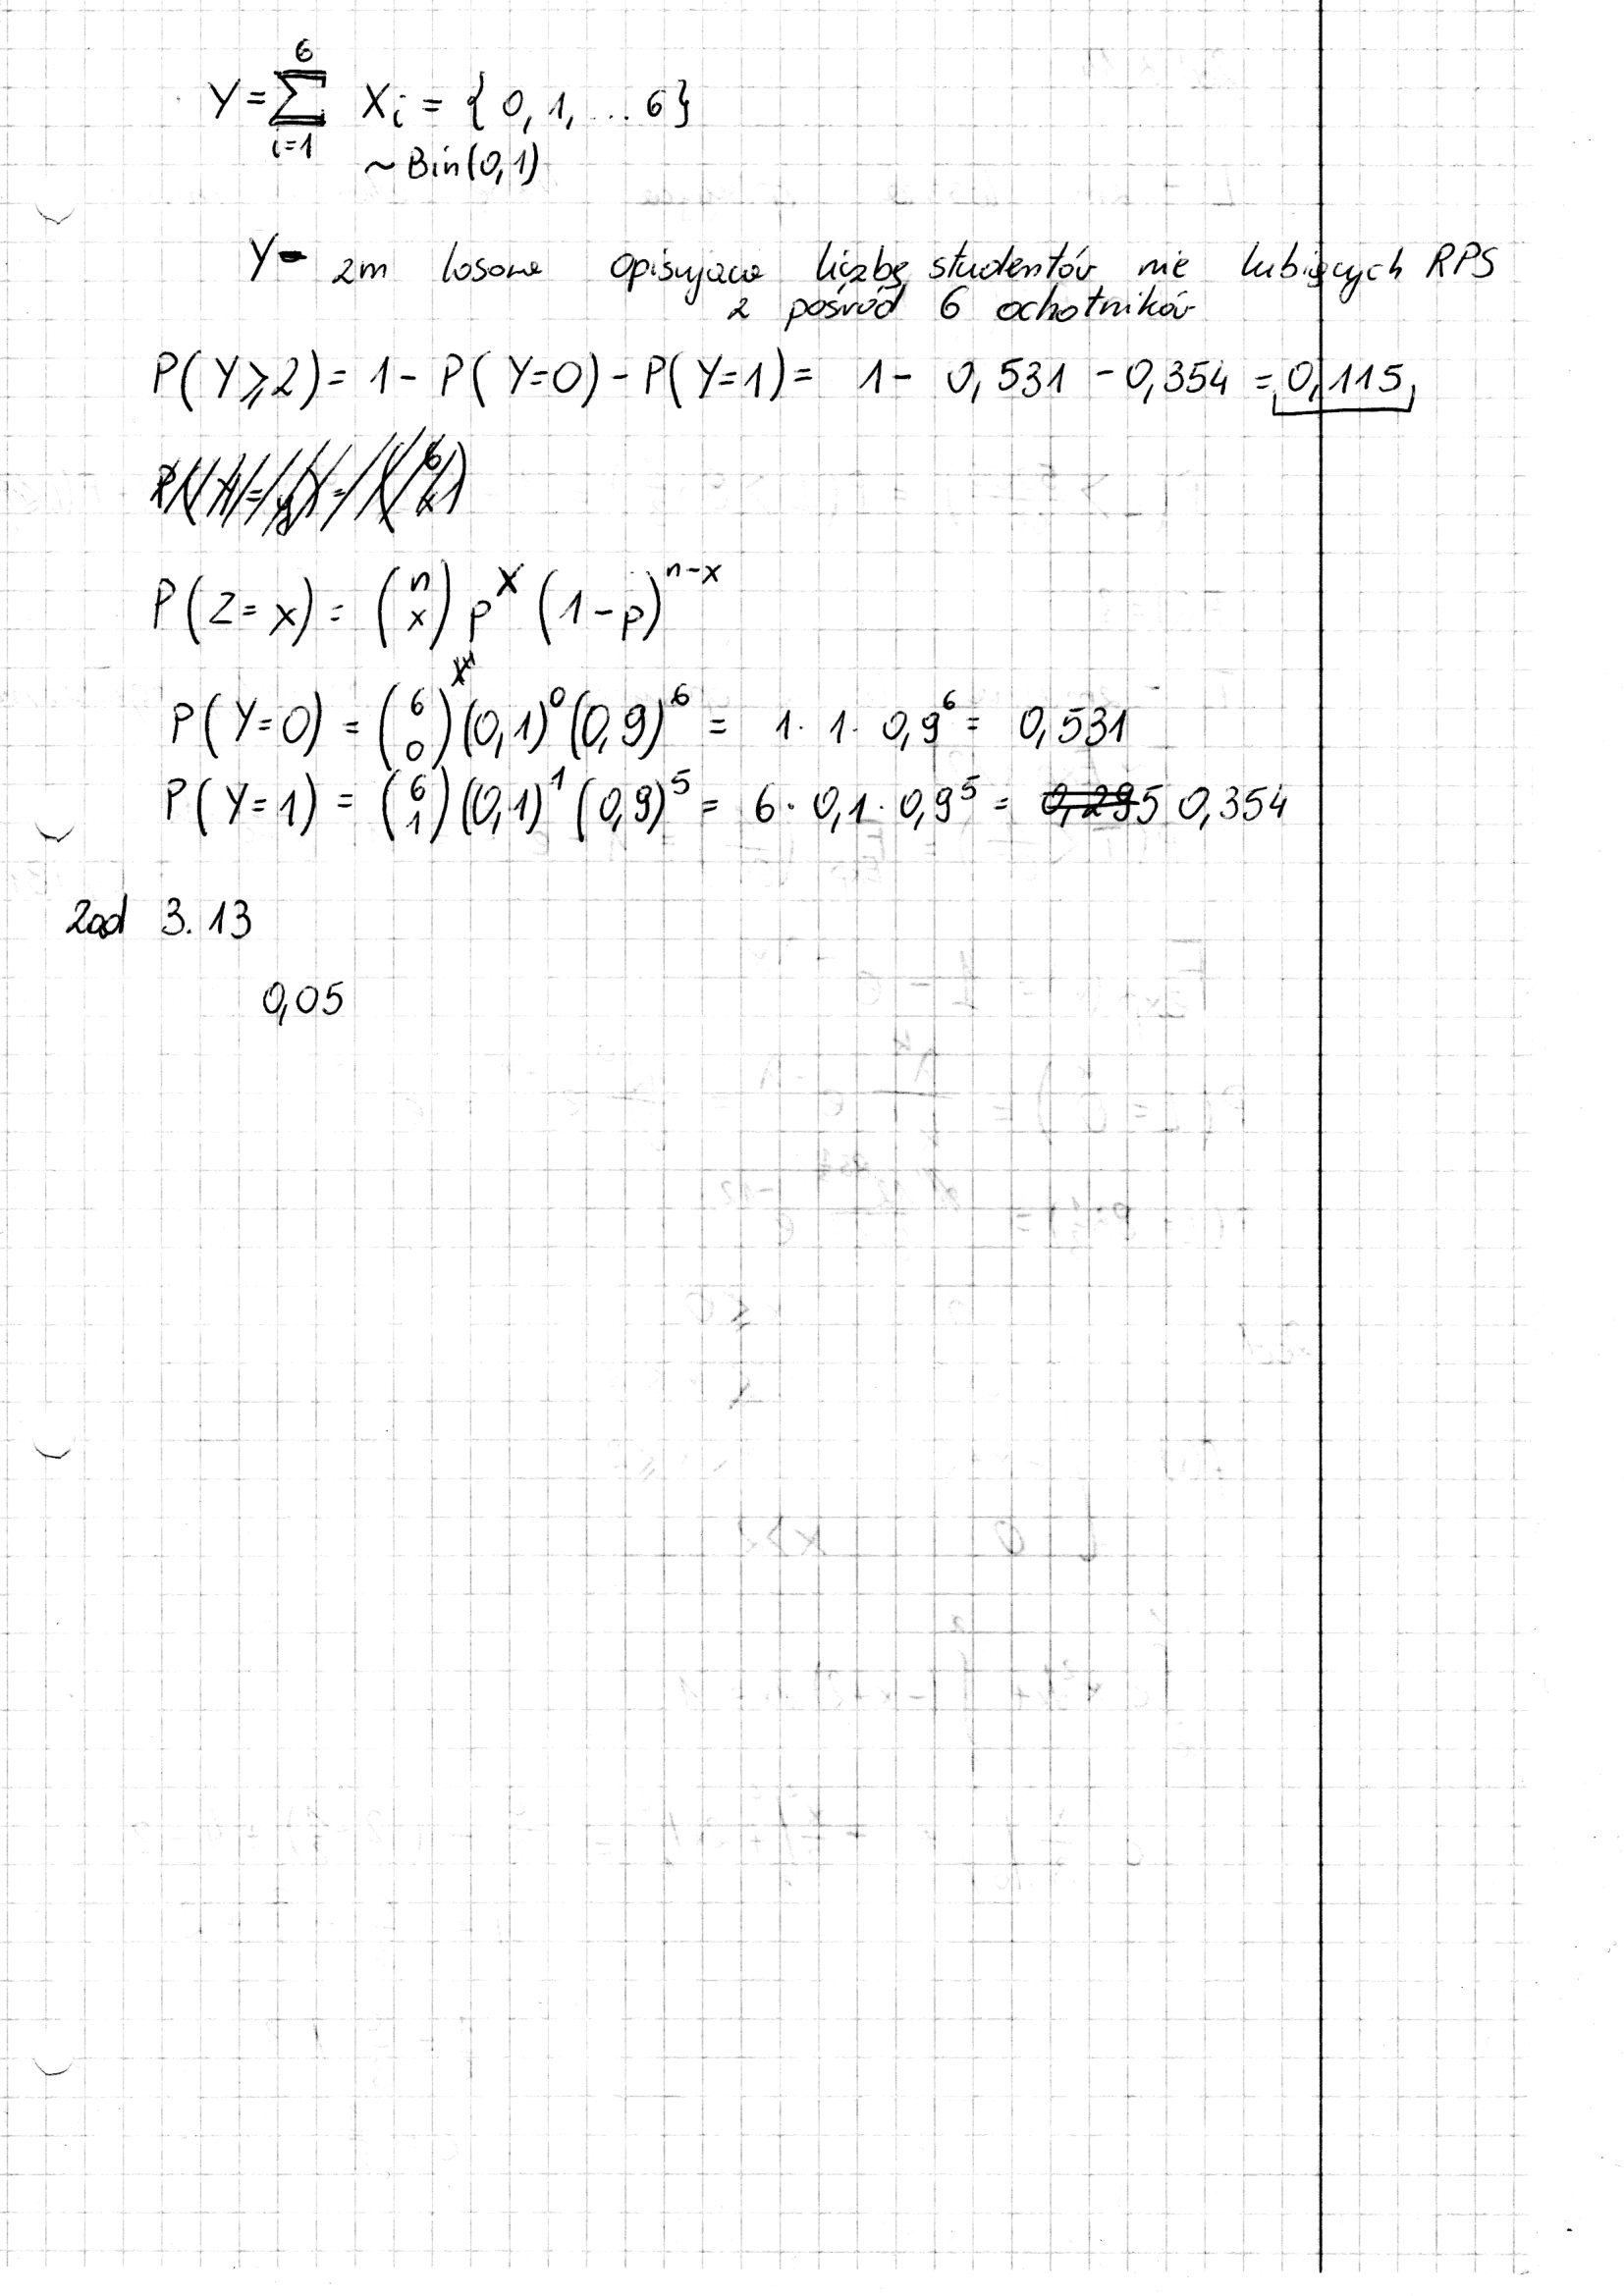 Y = \sum_{i=1}^{6} X_i = { 0, 1, ... 6 }
~ Bin(0,1)
Y - zm losowa opisująca liczbę studentów nie lubiących RPS
z pośród 6 ochotników
P(Y ≥ 2) = 1 - P(Y=0) - P(Y=1) = 1 - 0,531 - 0,354 = 0,115
P(Z = x) = \binom{n}{x} p^x (1-p)^{n-x}
P(Y=0) = \binom{6}{0} (0,1)^0 (0,9)^6 = 1 · 1 · 0,9^6 = 0,531
P(Y=1) = \binom{6}{1} (0,1)^1 (0,9)^5 = 6 · 0,1 · 0,9^5 = 0,295 0,354
Zad 3.13
0,05